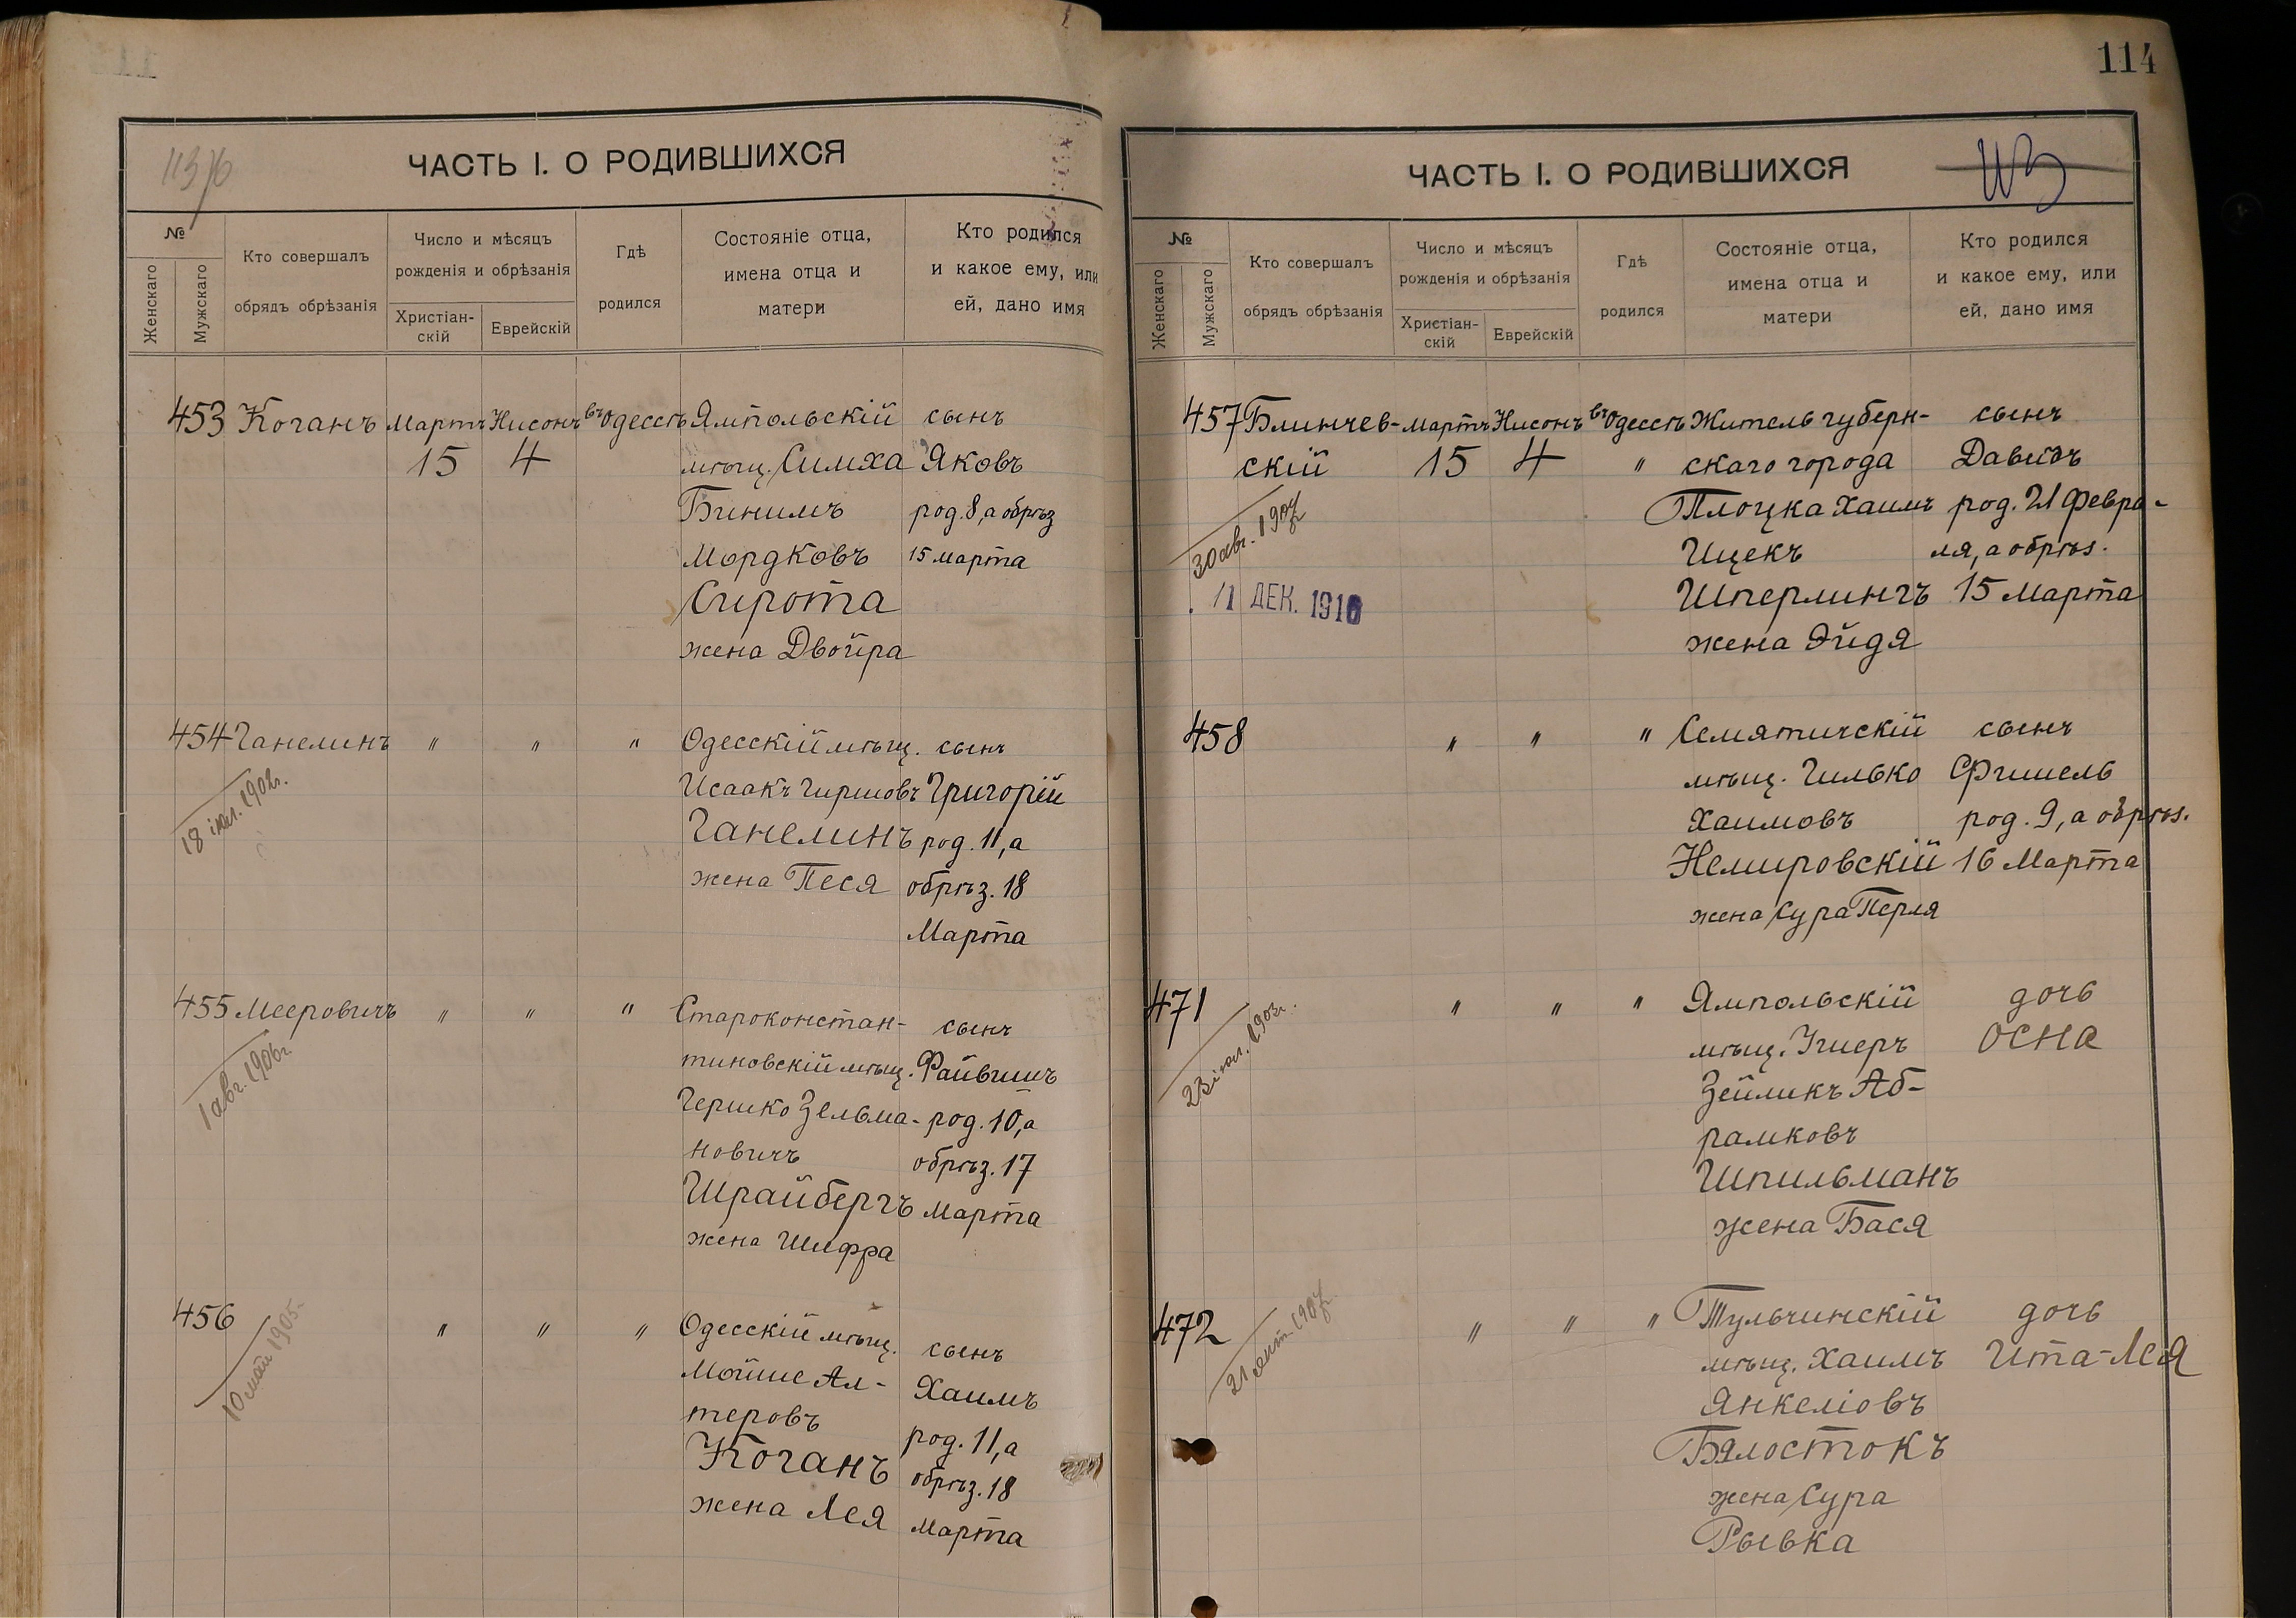 113 об
ЧАСТЬ I. О РОДИВШИХСЯ
№
Женскаго
Мужскаго
Кто совершалъ
обрядъ обрѣзанія
Число и мѣсяцъ
рожденія и обрѣзанія
Христіан-
скій
Еврейскій
Гдѣ
родился
Состояніе отца,
имена отца и
матери
Кто родился
и какое ему, или
ей, дано имя
453 Коганъ Мартъ Нисонъ въ Одессѣ Ямпольскій сынъ
15 4 мѣщ. Симха Яковъ
Бинимъ род. 8, а обрѣз
Мордковъ 15 марта
Сирота
жена Двойра
454 Ганелинъ " " " Одесскій мѣщ. сынъ
Исаакъ Гиршовъ Григорій
18 іюл. 1902г.
Ганелинъ род. 11, а
жена Песя обрѣз. 18
Марта
455 Мееровичъ " " " Староконстан- сынъ
тиновскій мѣщ. Файвишъ
1 авг. 1906г.
Гершко Зельма- род. 10, а
новичъ обрѣз. 17
Шрайбергъ Марта
жена Шифра
456 " " " Одесскій мѣщ. сынъ
10 май 1905
Мойше Ал- Хаимъ
теровъ род. 11, а
Коганъ обрѣз. 18
жена Лея Марта
114
ЧАСТЬ I. О РОДИВШИХСЯ
№
Женскаго
Мужскаго
Кто совершалъ
обрядъ обрѣзанія
Число и мѣсяцъ
рожденія и обрѣзанія
Христіан-
скій
Еврейскій
Гдѣ
родился
Состояніе отца,
имена отца и
матери
Кто родился
и какое ему, или
ей, дано имя
457 Блинчев- мартъ Нисонъ въ Одессѣ Житель губерн- сынъ
скій 15 4 " скаго города Давидъ
Плоцка Хаимъ род. 21 Февра-
30 авг. 1907
Ицекъ ля, а обрѣз.
11 ДЕК. 1910
Шперлингъ 15 Марта
жена Эйдя
458 " " " Семятичскій сынъ
мѣщ. Гилько Фишель
Хаимовъ род. 9, а обрѣз.
Немировскій 16 Марта
жена Сура Перля
471 " " " Ямпольскій дочь
мѣщ. Ушеръ Осна
23 іюл. 1903г.
Зейликъ Аб-
рамковъ
Шпильманъ
жена Бася
472 " " " Тульчинскій дочь
21 1907г.
мѣщ. Хаимъ Ита-Лея
Янкеліовъ
Бялостокъ
жена Сура
Рывка